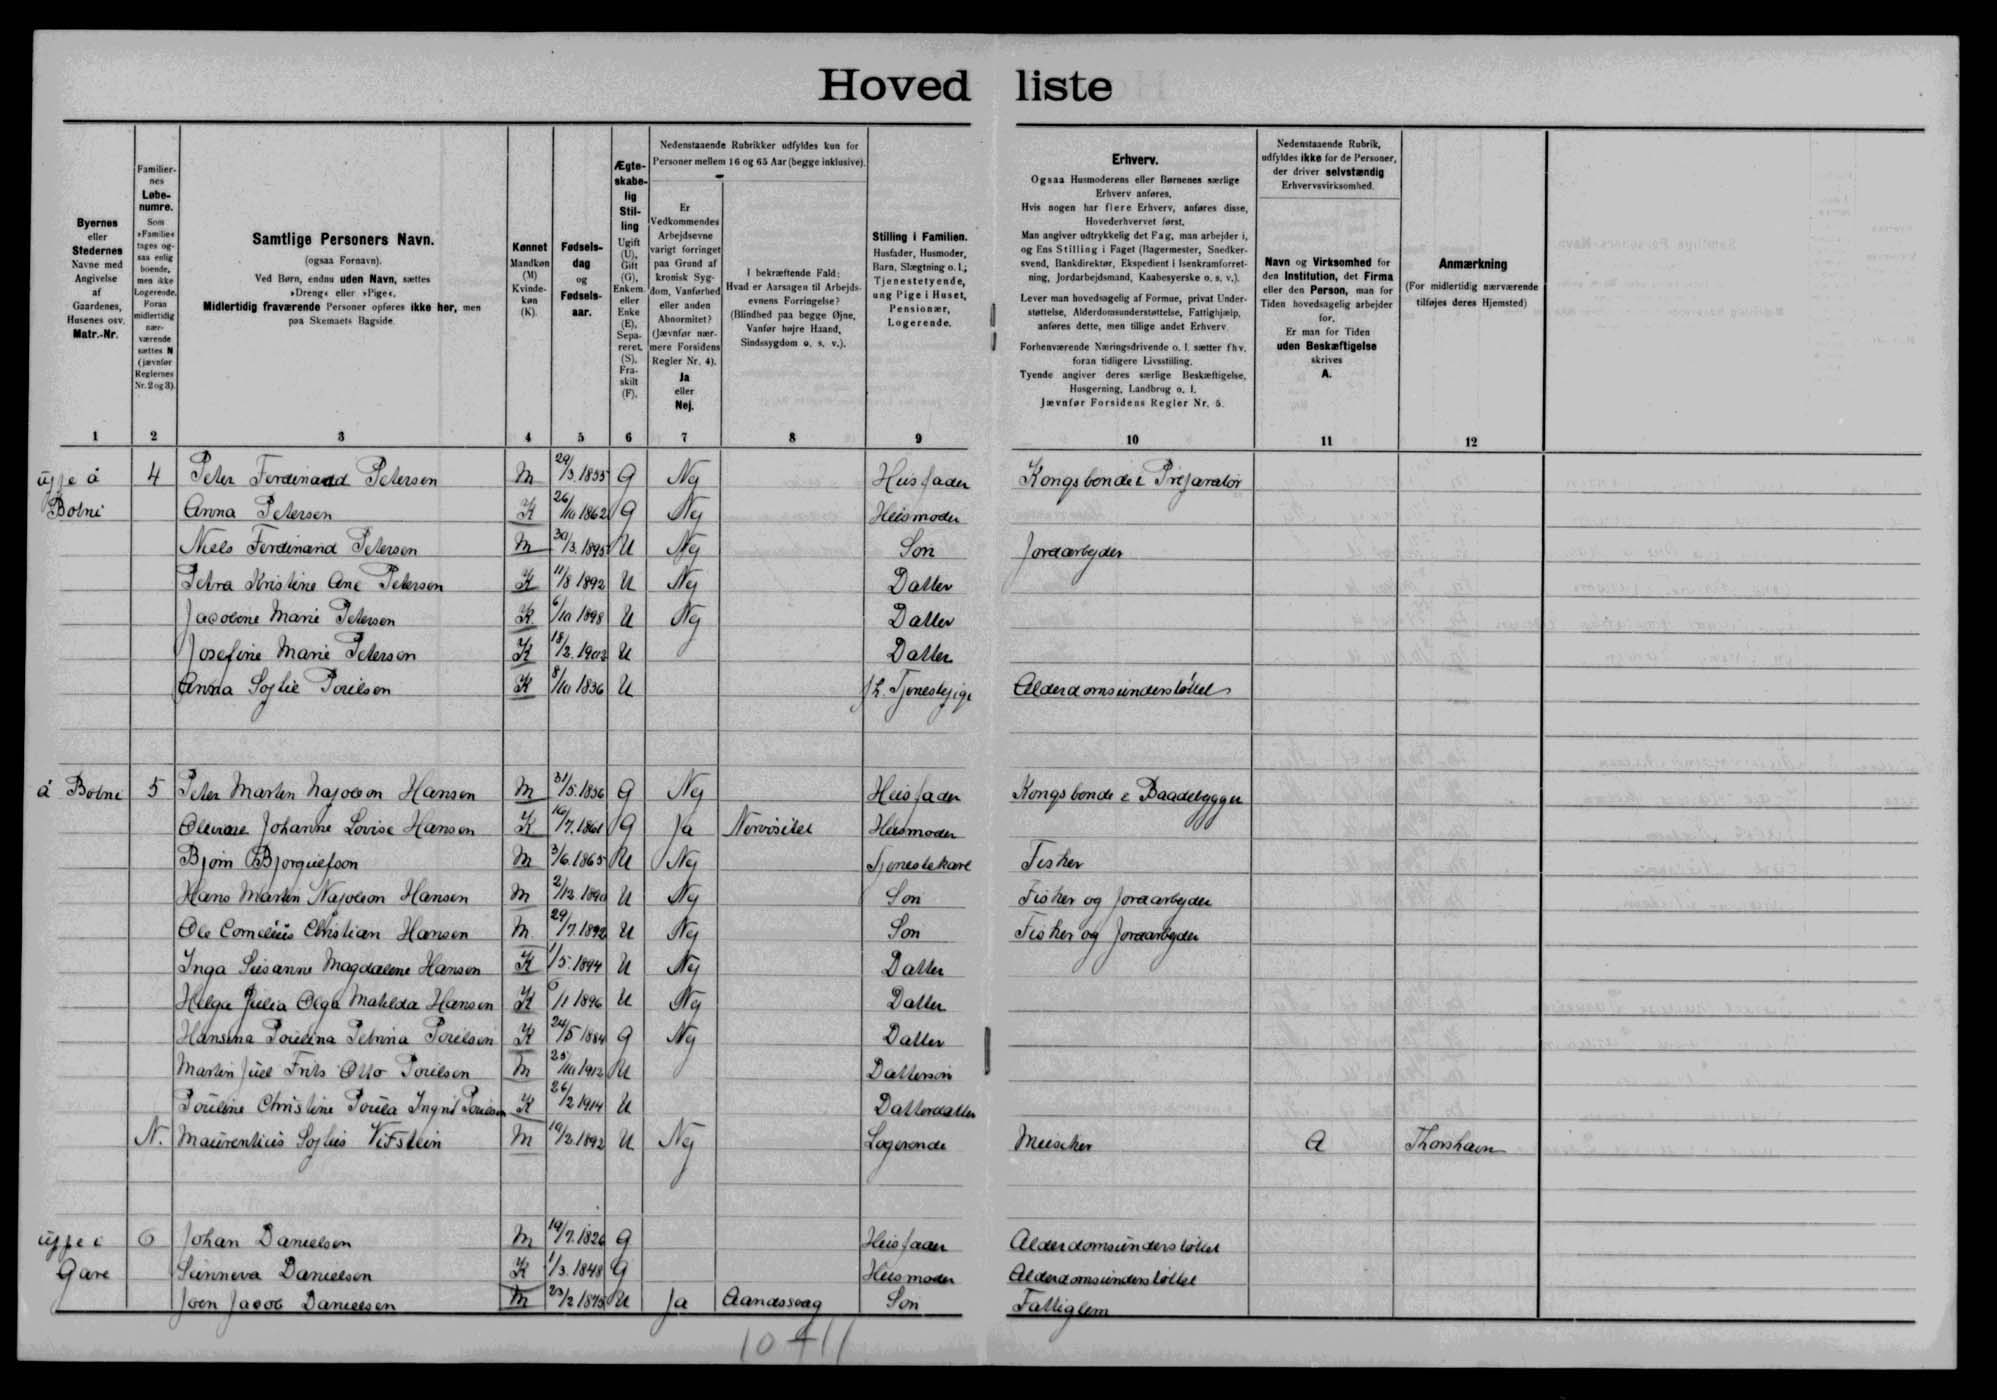 Hovedliste
Byernes eller Stedernes Navne med Angivelse af Gaardenes, Husenes osv. Matr.-Nr.
Familiernes Løbenumre. Som »Familie« tages ogsaa enlig boende, men ikke Logerende. Foran midlertidig nærværende sættes N (jævnfør Reglernes Nr. 2 og 3).
Samtlige Personers Navn. (ogsaa Fornavn). Ved Børn, endnu uden Navn, sættes »Dreng« eller »Pige«. Midlertidig fraværende Personer opføres ikke her, men paa Skemaets Bagside.
Kønnet Mandkøn (M) Kvindekøn (K).
Fødselsdag og Fødselsaar.
Ægteskabelig Stilling Ugift (U), Gift (G), Enkem. eller Enke (E), Separeret, (S), Fraskilt (F).
Nedenstaaende Rubrikker udfyldes kun for Personer mellem 16 og 65 Aar (begge inklusive).
Er Vedkommendes Arbejdsevne varigt forringet paa Grund af kronisk Sygdom, Vanførhed eller anden Abnormitet? (Jævnfør nærmere Forsidens Regler Nr. 4). Ja eller Nej.
I bekræftende Fald: Hvad er Aarsagen til Arbejdsevnens Forringelse? (Blindhed paa begge Øjne, Vanfør højre Haand, Sindssygdom o. s. v.).
Stilling i Familien. Husfader, Husmoder, Barn, Slægtning o. l.; Tjenestetyende, ung Pige i Huset, Pensionær, Logerende.
Erhverv.
Ogsaa Husmoderens eller Børnenes særlige Erhverv anføres.
Hvis nogen har flere Erhverv, anføres disse, Hovederhvervet først.
Man angiver udtrykkelig det Fag, man arbejder i, og Ens Stilling i Faget (Bagermester, Snedkersvend, Bankdirektør, Ekspedient i Isenkramforretning, Jordarbejdsmand, Kaabesyerske o. s. v.).
Lever man hovedsagelig af Formue, privat Understøttelse, Alderdomsunderstøttelse, Fattighjælp, anføres dette, men tillige andet Erhverv.
Forhenværende Næringsdrivende o. l. sætter fhv. foran tidligere Livsstilling.
Tyende angiver deres særlige Beskæftigelse, Husgerning, Landbrug o. l.
Jævnfør Forsidens Regler Nr. 5.
Nedenstaaende Rubrik, udfyldes ikke for de Personer, der driver selvstændig Erhvervsvirksomhed.
Navn og Virksomhed for den Institution, det Firma eller den Person, man for Tiden hovedsagelig arbejder for.
Er man for Tiden uden Beskæftigelse skrives A.
Anmærkning (For midlertidig nærværende tilføjes deres Hjemsted)
1 2 3 4 5 6 7 8 9 10 11 12
uppe á 4 Peter Ferdinand Petersen M 29/3.1855 G Nej Husfader Kongsbonde & Præparatør
Botni Anna Petersen K 26/10 1862 G Nej Husmoder
Niels Ferdinand Petersen M 30/3.1895 U Nej Søn Jordarbejder
Petra Kristine Ane Petersen K 11/8 1892 U Nej Datter
Jacobine Marie Petersen K. 6/10 1898 U Nej Datter
Josefine Marie Petersen K 18/2.1902 U Datter
Anna Sophie Poulsen K 8/10 1836 U fh. Tjenestepige Alderdomsunderstøttet
á Botni 5 Peter Martin Napoleon Hansen M 31/5.1856 G Nej Husfader Kongsbonde & Baadebygger
Johanne Lovise Hansen K 10/7.1861 G Ja Nervøsitet Husmoder
Bjørn M 3/6.1865 U Nej Tjenestekarl Fisker
Hans Martin Napoleon Hansen M 2/12.1890 U Nej Søn Fisker og Jordarbejder
Ole Cornelius Christian Hansen M. 29/7.1892 U Nej Søn Fisker og Jordarbejder
Inga Susanne Magdalene Hansen K 1/5.1894 U Nej Datter
Helga Julia Olga Matilda Hansen K 6/11 1896 U Nej Datter
Hansina Poulina Petrina Poulsen K 24/5 1884 G Nej Datter
Martin Juel Frits Otto Poulsen M 25/10 1912 U Dattersøn
Pouline Christine Poula Ingrid Poulsen K 26/2 1914 U Datterdatter
N. Maurentius Sophus M 19/2.1892 U Nej Logerende Musiker A Thorshavn
uppe i 6 Johan Danielsen M 19/7.1826 G Husfader Alderdomsunderstøttet
Gare Sunneva Danielsen K 1/3.1848 G Husmoder Alderdomsunderstøttet
Joen Jacob Danielsen M 23/2 1875 U Ja Aandssvag Søn Fattiglem
10+11